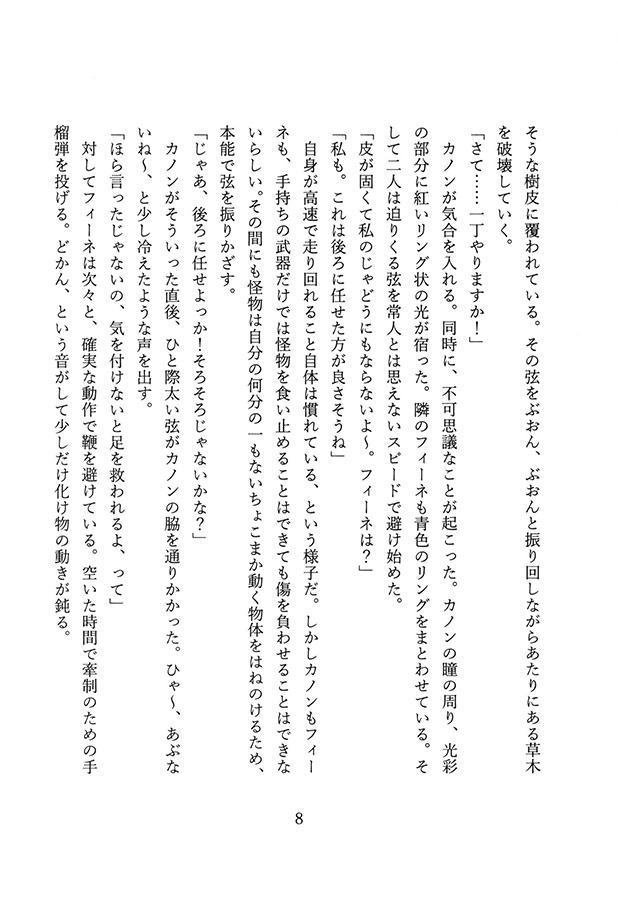 そうな樹皮に覆われている。その弦をぶおん、ぶおんと振り回しながらあたりにある草木
を破壊していく。
「さて……一丁やりますか！」
カノンが気合を入れる。同時に、不可思議なことが起こった。カノンの瞳の周り、光彩
の部分に紅いリング状の光が宿った。隣のフィーネも青色のリングをまとわせている。そ
して二人は迫りくる弦を常人とは思えないスピードで避け始めた。
「皮が固くて私のじゃどうにもならないよ〜。フィーネは？」
「私も。これは後ろに任せた方が良さそうね」
自身が高速で走り回れること自体は慣れている、という様子だ。しかしカノンもフィー
ネも、手持ちの武器だけでは怪物を食い止めることはできても傷を負わせることはできな
いらしい。その間にも怪物は自分の何分の一もないちょこまか動く物体をはねのけるため、
本能で弦を振りかざす。
「じゃあ、後ろに任せよっか！そろそろじゃないかな？」
カノンがそういった直後、ひと際太い弦がカノンの脇を通りかかった。ひゃ〜、あぶな
いね〜、と少し冷えたような声を出す。
「ほら言ったじゃないの、気を付けないと足を救われるよ、って」
対してフィーネは次々と、確実な動作で鞭を避けている。空いた時間で牽制のための手
榴弾を投げる。どかん、という音がして少しだけ化け物の動きが鈍る。
8